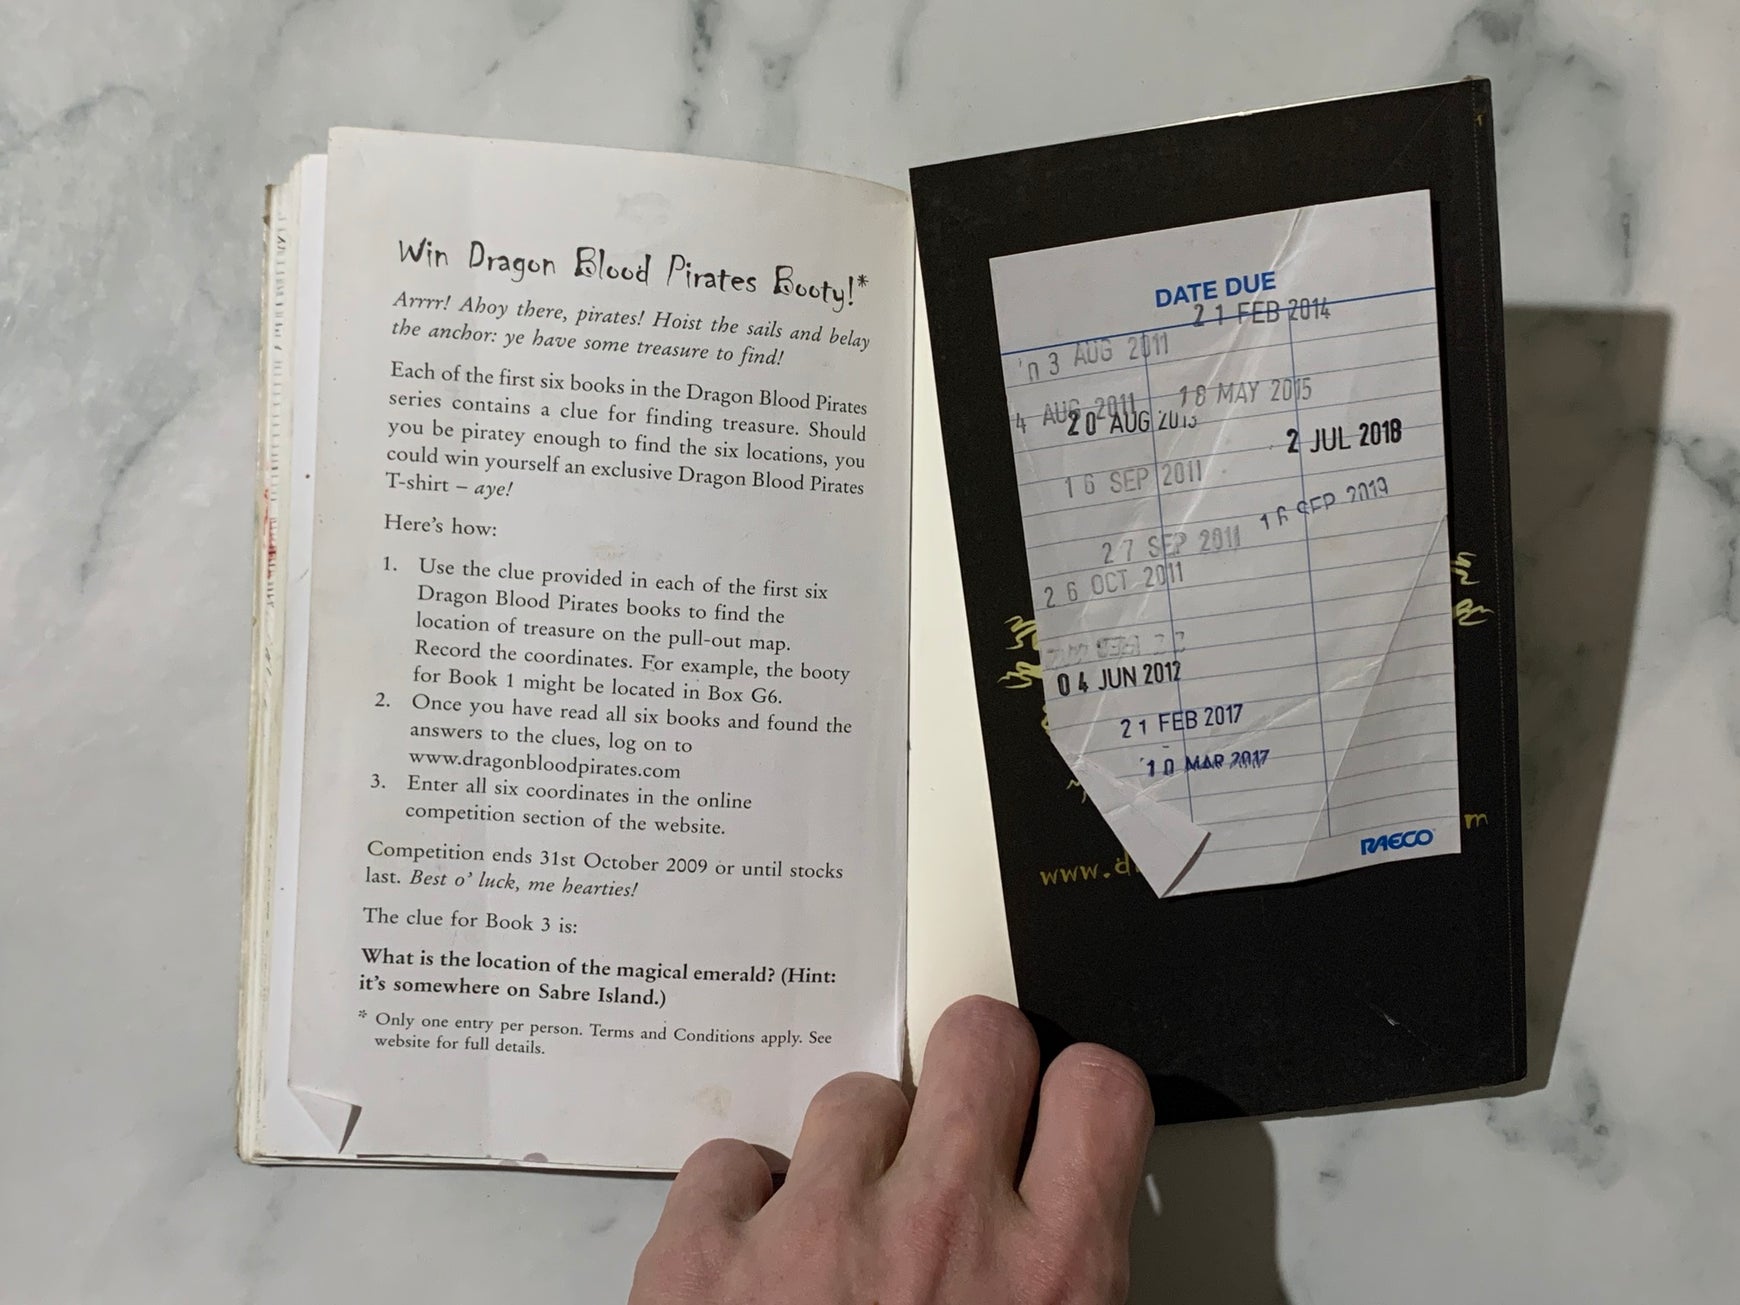 Win Dragon Blood Pirates Booty!*
Arrrr! Ahoy there, pirates! Hoist the sails and belay
the anchor: ye have some treasure to find!
Each of the first six books in the Dragon Blood Pirates
series contains a clue for finding treasure. Should
you be piratey enough to find the six locations, you
could win yourself an exclusive Dragon Blood Pirates
T-shirt – aye!
Here's how:
1. Use the clue provided in each of the first six
Dragon Blood Pirates books to find the
location of treasure on the pull-out map.
Record the coordinates. For example, the booty
for Book 1 might be located in Box G6.
2. Once you have read all six books and found the
answers to the clues, log on to
www.dragonbloodpirates.com
3. Enter all six coordinates in the online
competition section of the website.
Competition ends 31st October 2009 or until stocks
last. Best o' luck, me hearties!
The clue for Book 3 is:
What is the location of the magical emerald? (Hint:
it's somewhere on Sabre Island.)
* Only one entry per person. Terms and Conditions apply. See
website for full details.
DATE DUE
21 FEB 2014
3 AUG 2011
4 AUG 2011
18 MAY 2015
20 AUG
2 JUL 2018
16 SEP 2011
16 SEP 2019
27 SEP 2011
26 OCT 2011
04 JUN 2012
21 FEB 2017
10 MAR 2017
RAECO
www.d
m